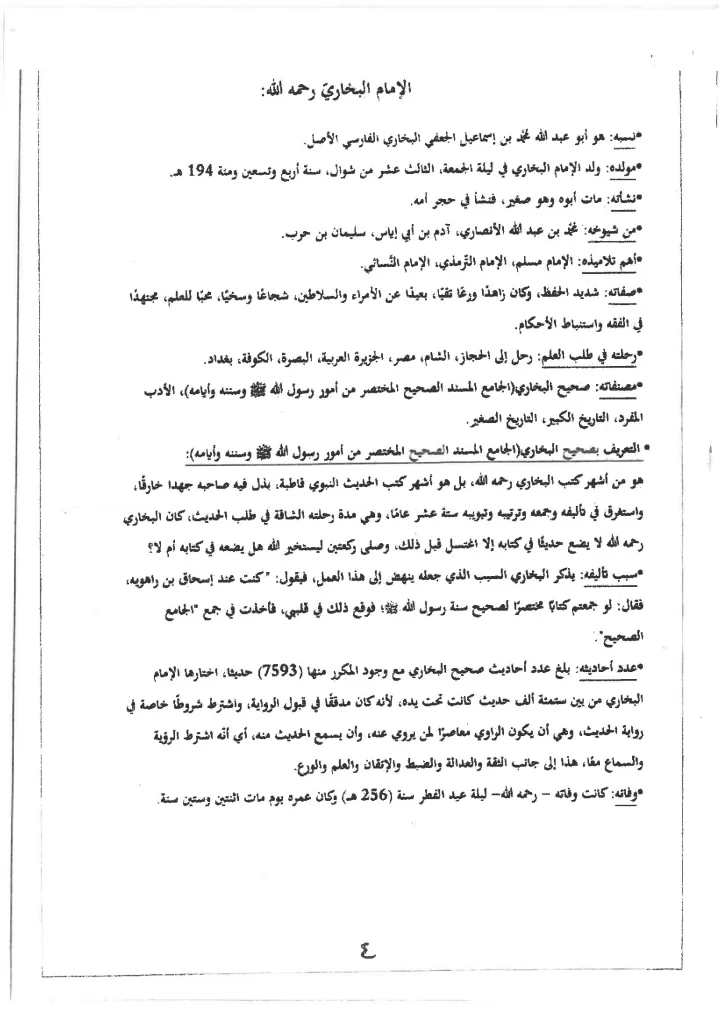 الإمام البخاريّ رحمه الله:
*نسبه: هو أبو عبد الله محمّد بن إسماعيل الجعفي البخاري الفارسي الأصل.
*مولده: ولد الإمام البخاري في ليلة الجمعة، الثالث عشر من شوال، سنة أربع وتسعين ومئة 194 هـ.
*نشأته: مات أبوه وهو صغير، فنشأ في حجر أمه.
*من شيوخه: محمّد بن عبد الله الأنصاري، آدم بن أبي إياس، سليمان بن حرب.
*أهم تلاميذه: الإمام مسلم، الإمام الترمذي، الإمام النسائي.
*صفاته: شديد الحفظ، وكان زاهدًا ورعًا تقيًا، بعيدًا عن الأمراء والسلاطين، شجاعًا وسخيًا، محبًا للعلم، مجتهدًا
في الفقه واستنباط الأحكام.
*رحلته في طلب العلم: رحل إلى الحجاز، الشام، مصر، الجزيرة العربية، البصرة، الكوفة، بغداد.
*مصنفاته: صحيح البخاري(الجامع المسند الصحيح المختصر من أمور رسول الله ﷺ وسننه وأيامه)، الأدب
المفرد، التاريخ الكبير، التاريخ الصغير.
• التعريف بصحيح البخاري(الجامع المسند الصحيح المختصر من أمور رسول الله ﷺ وسننه وأيامه):
هو من أشهر كتب البخاري رحمه الله، بل هو أشهر كتب الحديث النبوي قاطبة، بذل فيه صاحبه جهدا خارقًا،
واستغرق في تأليفه وجمعه وترتيبه وتبويبه ستة عشر عامًا، وهي مدة رحلته الشاقة في طلب الحديث، كان البخاري
رحمه الله لا يضع حديثًا في كتابه إلا اغتسل قبل ذلك، وصلى ركعتين ليستخير الله هل يضعه في كتابه أم لا؟
*سبب تأليفه: يذكر البخاري السبب الذي جعله ينهض إلى هذا العمل، فيقول: "كنت عند إسحاق بن راهويه،
فقال: لو جمعتم كتابًا مختصرًا لصحيح سنة رسول الله ﷺ؛ فوقع ذلك في قلبي، فأخذت في جمع "الجامع
الصحيح".
*عدد أحاديثه: بلغ عدد أحاديث صحيح البخاري مع وجود المكرر منها (7593) حديثا، اختارها الإمام
البخاري من بين ستمئة ألف حديث كانت تحت يده، لأنه كان مدققًا في قبول الرواية، واشترط شروطًا خاصة في
رواية الحديث، وهي أن يكون الراوي معاصرًا لمن يروي عنه، وأن يسمع الحديث منه، أي أنّه اشترط الرؤية
والسماع معًا، هذا إلى جانب الثقة والعدالة والضبط والإتقان والعلم والورع.
*وفاته: كانت وفاته – رحمه الله– ليلة عيد الفطر سنة (256 هـ) وكان عمره يوم مات اثنتين وستين سنة.
٤